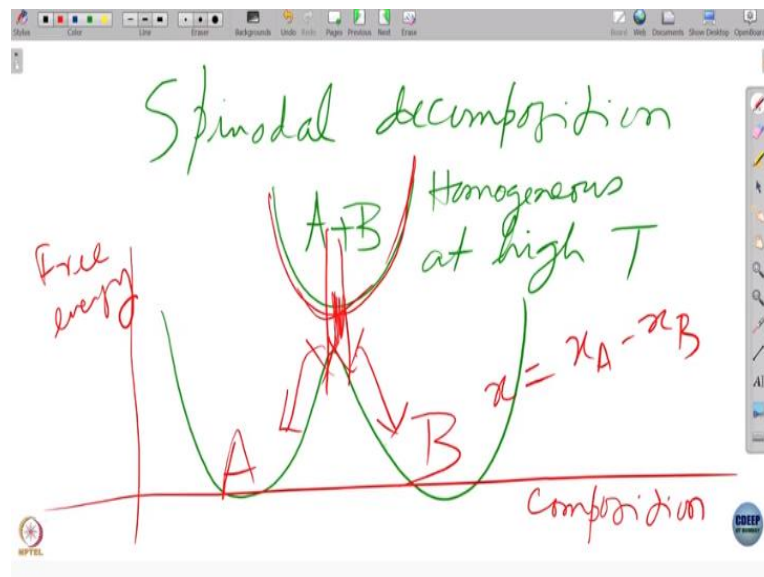 Styles Color Line Eraser Backgrounds Undo Redo Pages Previous Next Erase Board Web Documents Show Desktop OpenBoard
Spinodal decomposition
Homogeneous
at high T
A+B
Free
energy
x = x_A - x_B
A
B
Composition
NPTEL
CDEEP
IIT BOMBAY